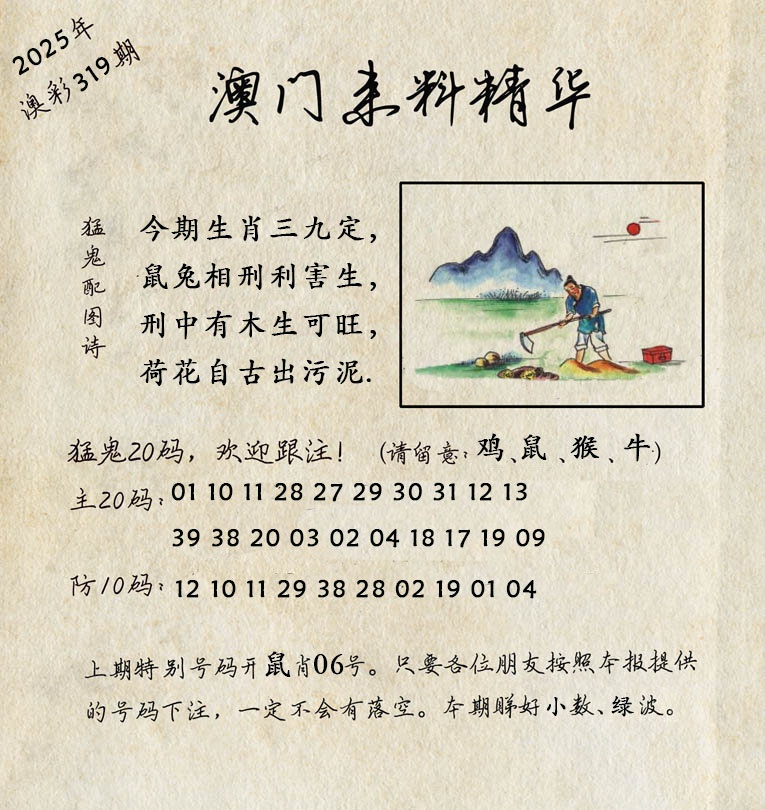 2025年
澳彩319期
澳门来料精华
猛鬼配图诗
今期生肖三九定，
鼠兔相刑利害生，
刑中有木生可旺，
荷花自古出污泥.
猛鬼20码，欢迎跟注！（请留意：鸡、鼠、猴、牛）
主20码：01 10 11 28 27 29 30 31 12 13
39 38 20 03 02 04 18 17 19 09
防10码：12 10 11 29 38 28 02 19 01 04
上期特别号码开鼠肖06号。只要各位朋友按照本报提供
的号码下注，一定不会有落空。本期睇好小数、绿波。